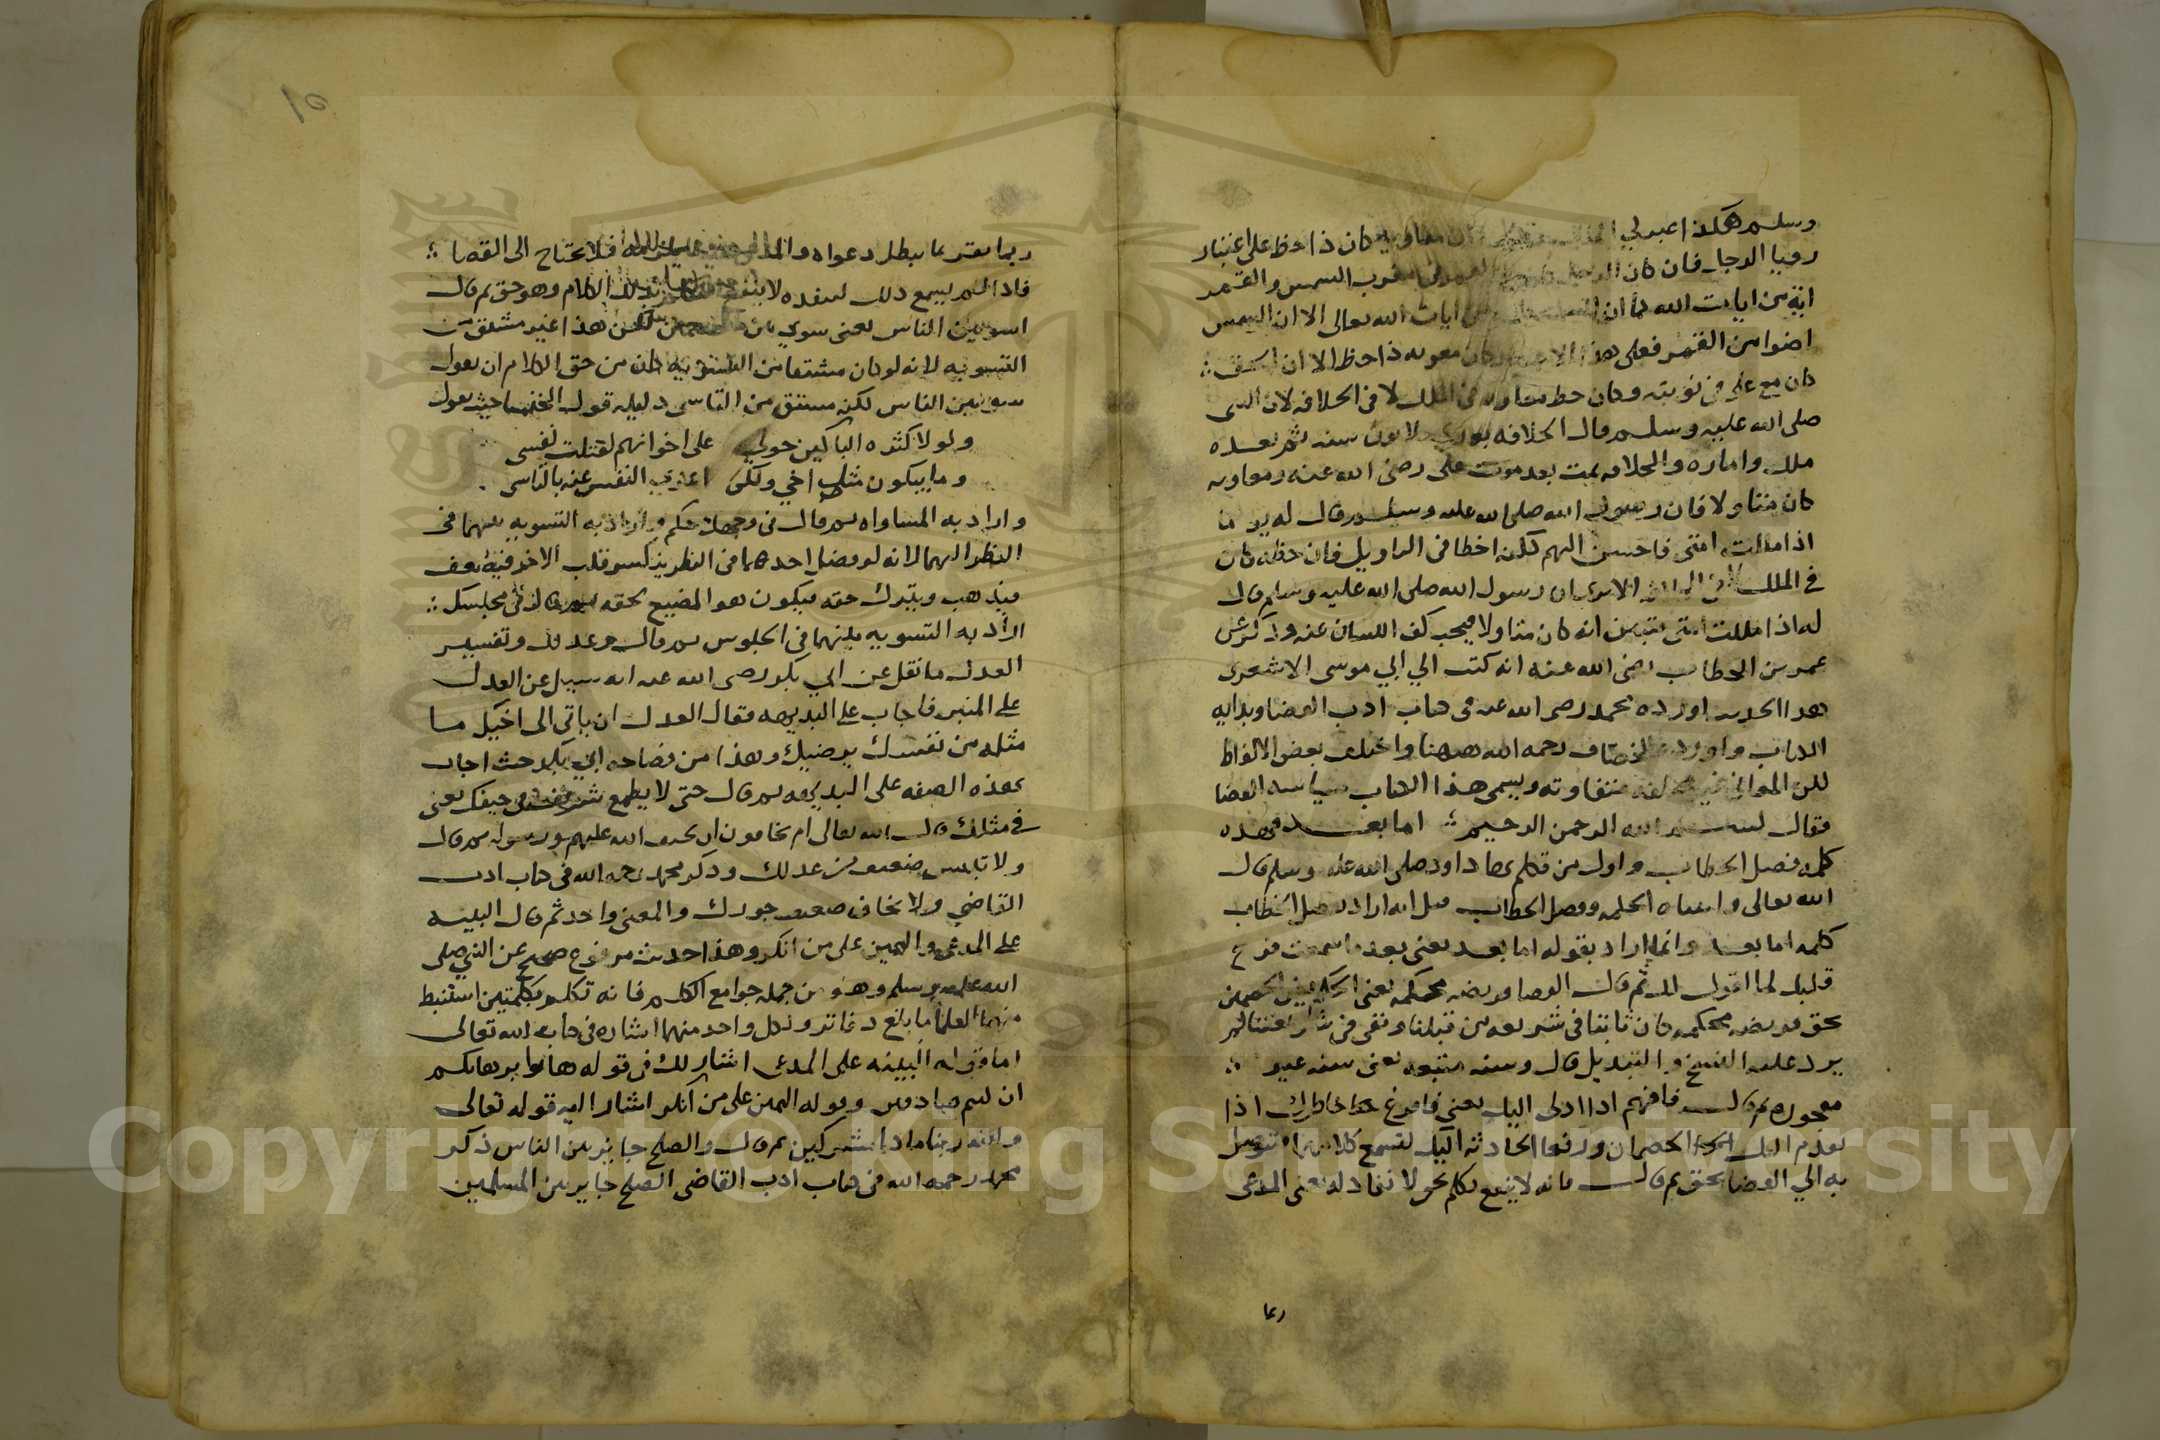 وسلم هكذا عبر لي كان ذا حظ على اعتبار
رويا الرجل فان كان الشمس والقمر
اية من ايات الله كما ان من ايات الله تعالى الا ان الشمس
اضوا من القمر فعلى هذا ذا حظ الا ان الحق
كان مع علي في نوبته وكان حظ معاويه في الملك لا في الخلافه لان النبى
صلى الله عليه وسلم قال الخلافه بعدي ثلاثون سنه ثم بعده
ملك واماره والخلافه تمت بعد موت على رضى الله عنه ومعاويه
كان متاولا فان رسول الله صلى الله عليه وسلم قال له يوما
اذا ملكت امتى فاحسن اليهم لكنه اخطا فى التاويل فان حظه كان
في الملك رسول الله صلى الله عليه وسلم قال
له اذا ملكت امتى فتبين انه كان متاولا فيجب كف اللسان عنه وذكر عن
عمر بن الخطاب رضى الله عنه انه كتب الي ابي موسى الاشعرى
هذا الحديث اورده محمد رضى الله عنه فى كتاب ادب القضا وبدا به
الكتاب واورده الخصاف رحمه الله ههنا واختلف بعض الالفاظ
لكن المعاني غير متفاوته ويسمى هذا الكتاب سياسه القضا
فقال بسم الله الرحمن الرحيم اما بعد فهذه
كلمه فصل الخطاب واول من تكلم بها داود صلى الله عليه وسلم قال
الله تعالى واتيناه الحكمه وفصل الخطاب قيل انه اراد بفصل الخطاب
كلمه اما بعد وانما اراد بقوله اما بعد يعنى بعد ما سمعت فرغ
قلبك لما اقول لك ثم قال القضا فريضه محكمه يعنى الحكم بين الخصمين
بحق فريضه محكمه كان ثابتا فى شريعه من قبلنا وبقى فى شريعتنا لم
يرد عليه النسخ والتبديل قال وسنه متبعه يعنى سنه غير
مهجوره ثم قال فافهم اذا ادلى اليك يعنى فافرغ خاطرك اذا
تقدم اليك الخصمان ورفعا الحادثه اليك لتسمع كلامهما فتوصل
به الي القضا بحق ثم قال فانه لا ينفع تكلم بحق لا نفاذ له يعنى المدعى
ربما
ربما يقر بما يبطل دعواه فلا يحتاج الى القضا
فاذا لم يسمع ذلك لا ينفذه لا ينفع الكلام وهو حق ثم قال
اس بين الناس يعنى سوي بين لكن هذا غير مشتق من
التسويه لانه لو كان مشتقا من التسويه كان من حق الكلام ان يقول
سو بين الناس لكنه مشتق من التاسى دليله قول الخنسا حيث تقول
ولولا كثره الباكين حولي على اخوانهم لقتلت نفسى
وما يبكون مثل اخي ولكن اعزي النفس عنه بالتاسى
واراد به المساواه ثم قال فى وجهك حكم واراد به التسويه بينهما فى
النظر اليهما لانه لو فضل احدهما فى النظر ينكسر قلب الاخر فيضعف
فيذهب ويترك حقه فيكون هو المضيع لحقه ثم قال فى مجلسك
اراد به التسويه بينهما فى الجلوس ثم قال وعدلك وتفسير
العدل ما نقل عن ابي بكر رضى الله عنه انه سيل عن العدل
على المنبر فاجاب على البديهه فقال العدل ان ياتى الى اخيك ما
مثله من نفسك يرضيك وهذا من فصاحه ابي بكر حيث اجاب
بهذه الصفه على البديهه ثم قال حتى لا يطمع شريف فى حيفك يعنى
في مثلك قال الله تعالى ام يخافون ان يحيف الله عليهم ورسوله ثم قال
ولا يايس ضعيف من عدلك وذكر محمد رحمه الله فى كتاب ادب
القاضي ولا يخاف ضعيف جورك والمعنى واحد ثم قال البينه
على المدعى واليمين على من انكر وهذا حديث مرفوع صحيح عن النبي صلى
الله عليه وسلم وهو من جمله جوامع الكلم فانه تكلم بكلمتين استنبط
منهما العلما ما بلغ دفاتر ولكل واحد منهما اشاره فى كتاب الله تعالى
اما قوله البينه على المدعى اشار لك فى قوله هاتوا برهانكم
ان كنتم صادقين وقوله اليمين على من انكر اشار اليه قوله تعالى
والله ربنا ما كنا مشركين ثم قال والصلح جايز بين الناس ذكر
محمد رحمه الله فى كتاب ادب القاضى الصلح جايز بين المسلمين
١٥
Copyright © King Saud University